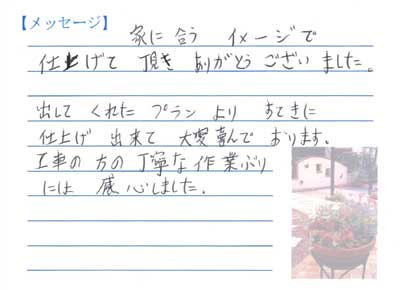 【メッセージ】
家に合う イメージで
仕上げて 頂き ありがとう ございました。
出して くれた プラン より すてきに
仕上げ 出来て 大変喜んで おります。
工事の 方の 丁寧な 作業ぶり
には 感心しました。